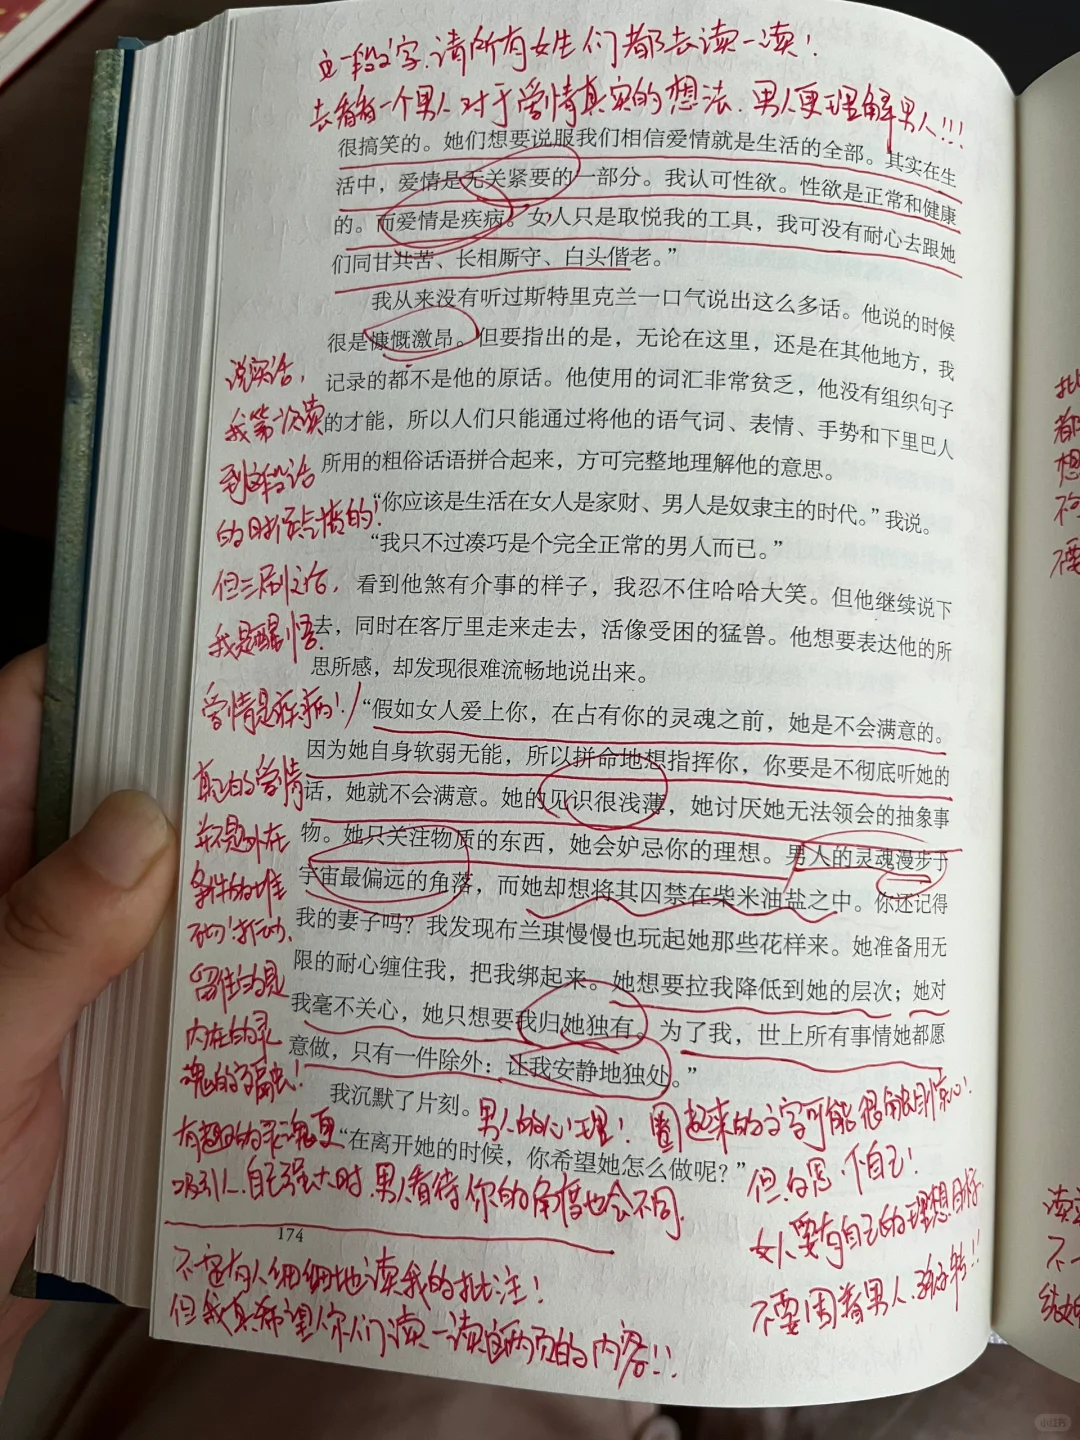 这一段字,请所有女生们都去读一读!
去看看一个男人对于爱情真实的想法、男人更理解男人!!!
很搞笑的。她们想要说服我们相信爱情就是生活的全部。其实在生
活中，爱情是无关紧要的一部分。我认可性欲。性欲是正常和健康
的。而爱情是疾病。女人只是取悦我的工具，我可没有耐心去跟她
们同甘共苦、长相厮守、白头偕老。”
我从来没有听过斯特里克兰一口气说出这么多话。他说的时候
很是慷慨激昂。但要指出的是，无论在这里，还是在其他地方，我
记录的都不是他的原话。他使用的词汇非常贫乏，他没有组织句子
的才能，所以人们只能通过将他的语气词、表情、手势和下里巴人
所用的粗俗话语拼合起来，方可完整地理解他的意思。
“你应该是生活在女人是家财、男人是奴隶主的时代。”我说。
“我只不过凑巧是个完全正常的男人而已。”
看到他煞有介事的样子，我忍不住哈哈大笑。但他继续说下
去，同时在客厅里走来走去，活像受困的猛兽。他想要表达他的所
思所感，却发现很难流畅地说出来。
“假如女人爱上你，在占有你的灵魂之前，她是不会满意的。
因为她自身软弱无能，所以拼命地想指挥你，你要是不彻底听她的
话，她就不会满意。她的见识很浅薄，她讨厌她无法领会的抽象事
物。她只关注物质的东西，她会妒忌你的理想。男人的灵魂漫步于
宇宙最偏远的角落，而她却想将其囚禁在柴米油盐之中。你还记得
我的妻子吗？我发现布兰琪慢慢也玩起她那些花样来。她准备用无
限的耐心缠住我，把我绑起来。她想要拉我降低到她的层次；她对
我毫不关心，她只想要我归她独有。为了我，世上所有事情她都愿
意做，只有一件除外：让我安静地独处。”
我沉默了片刻。
“在离开她的时候，你希望她怎么做呢？”
174
说实话,
我第一次读
到这段话
的时候是气愤的!
但三刷之后,
我是醒悟!
爱情是疾病!
真正的爱情
并不是外在
条件的堆
砌打动、
留住的是
内在的灵
魂的
有趣的灵魂更
吸引人、自己强大时、男人看待你的角度也会不同.
男人的心理! 圈起来的文字可能很触目惊心!
但勾思 个自己!
女人要有自己的理想目标
不要围着男人、孩子转!!
不一定有人细细地读我的批注!
但我真希望你们读一读这两页的内容!!
小红书